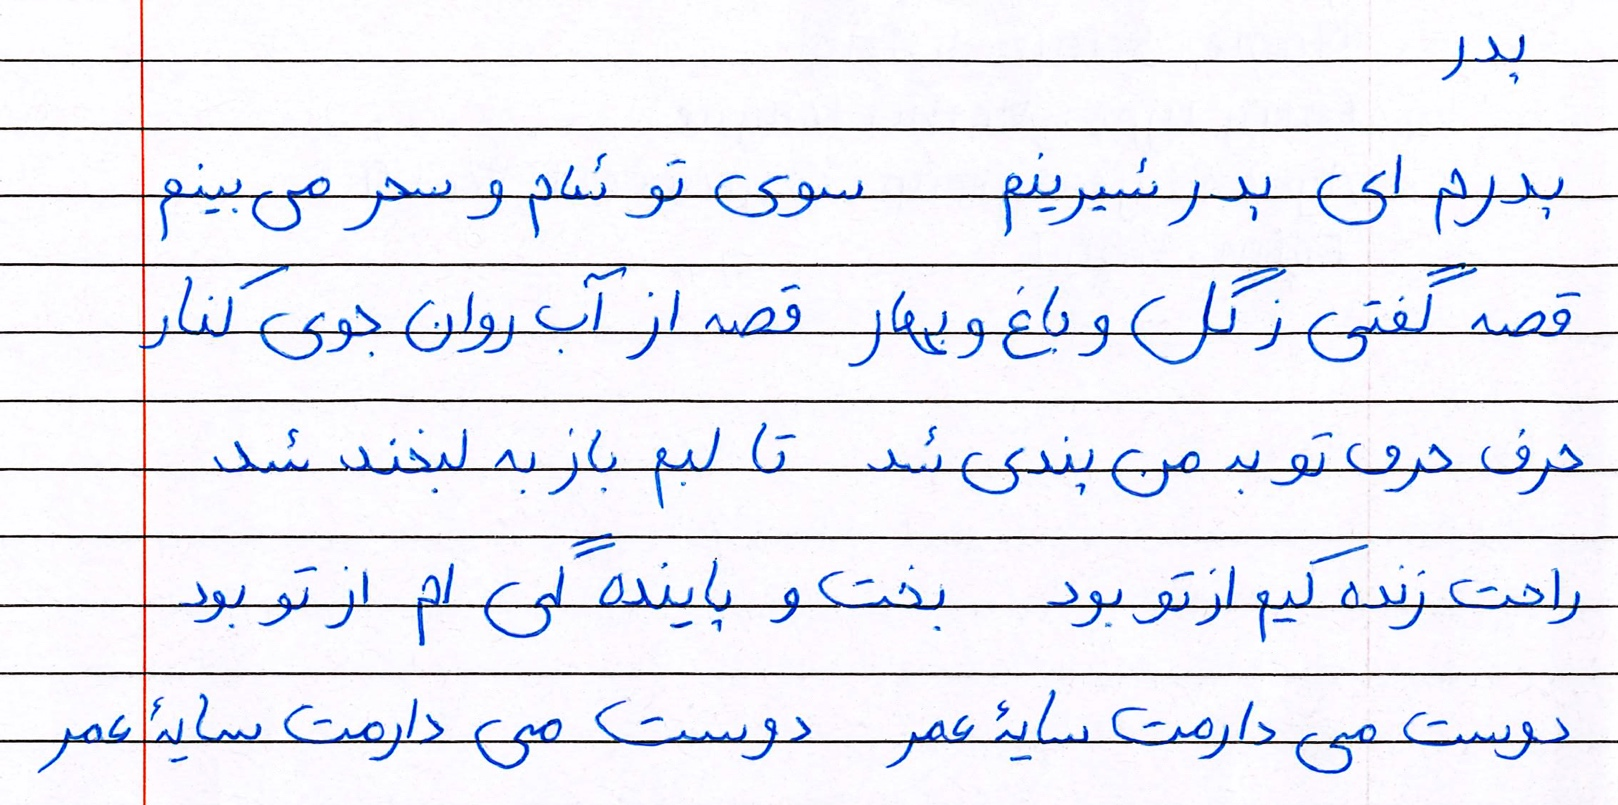 پدر
پدرم ای پدر شیرینم سوی تو شام و سحر می بینم
قصه گفتی ز گل و باغ و بهار قصه از آب روان جوی کنار
حرف حرف تو به من پندی شد تا لبم باز به لبخند شد
راحت زنده کیم از تو بود بخت و پاینده گی ام از تو بود
دوست می دارمت سایۀ عمر دوست می دارمت سایۀ عمر